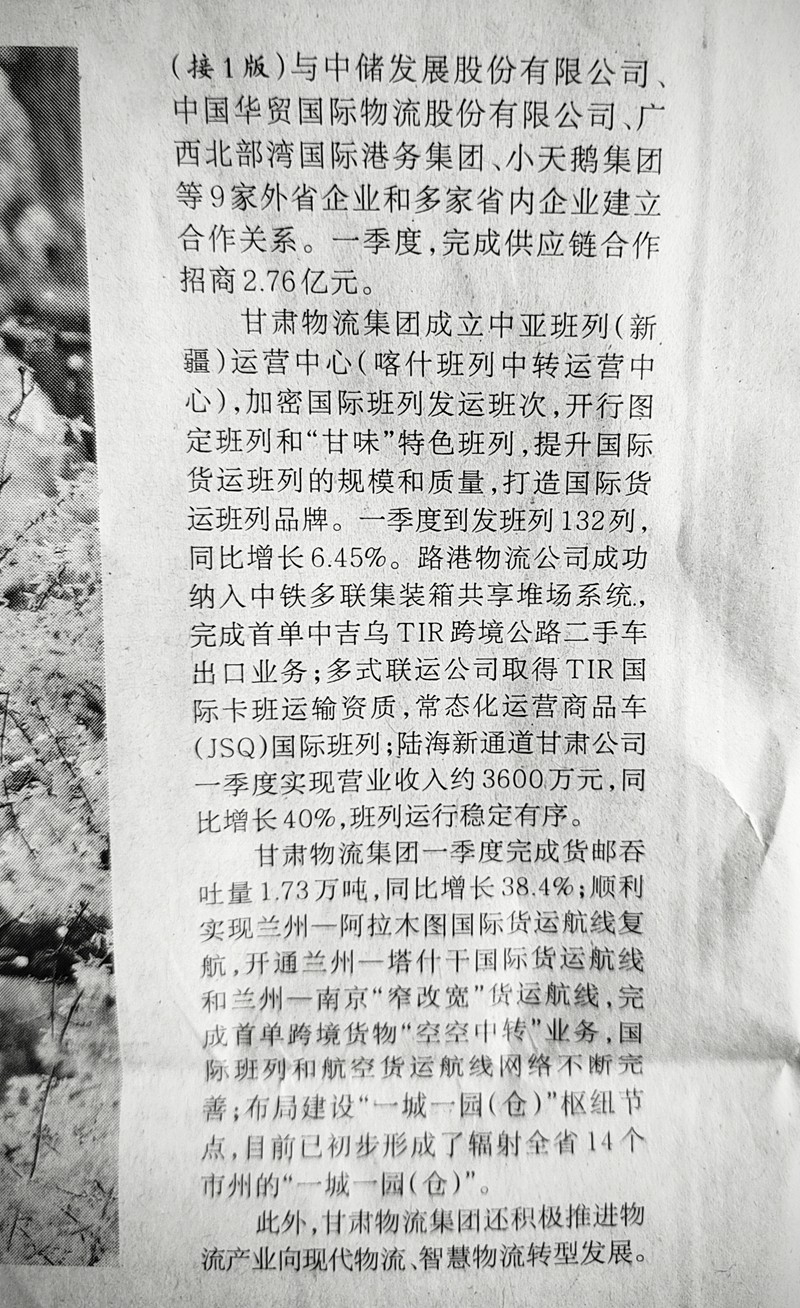 (接1版)与中储发展股份有限公司、
中国华贸国际物流股份有限公司、广
西北部湾国际港务集团、小天鹅集团
等9家外省企业和多家省内企业建立
合作关系。一季度,完成供应链合作
招商2.76亿元。
甘肃物流集团成立中亚班列(新
疆)运营中心(喀什班列中转运营中
心),加密国际班列发运班次,开行图
定班列和“甘味”特色班列,提升国际
货运班列的规模和质量,打造国际货
运班列品牌。一季度到发班列132列,
同比增长6.45%。路港物流公司成功
纳入中铁多联集装箱共享堆场系统,
完成首单中吉乌TIR跨境公路二手车
出口业务;多式联运公司取得TIR国
际卡班运输资质,常态化运营商品车
(JSQ)国际班列;陆海新通道甘肃公司
一季度实现营业收入约3600万元,同
比增长40%,班列运行稳定有序。
甘肃物流集团一季度完成货邮吞
吐量1.73万吨,同比增长38.4%;顺利
实现兰州—阿拉木图国际货运航线复
航,开通兰州—塔什干国际货运航线
和兰州—南京“窄改宽”货运航线,完
成首单跨境货物“空空中转”业务,国
际班列和航空货运航线网络不断完
善;布局建设“一城一园(仓)”枢纽节
点,目前已初步形成了辐射全省14个
市州的“一城一园(仓)”。
此外,甘肃物流集团还积极推进物
流产业向现代物流、智慧物流转型发展。